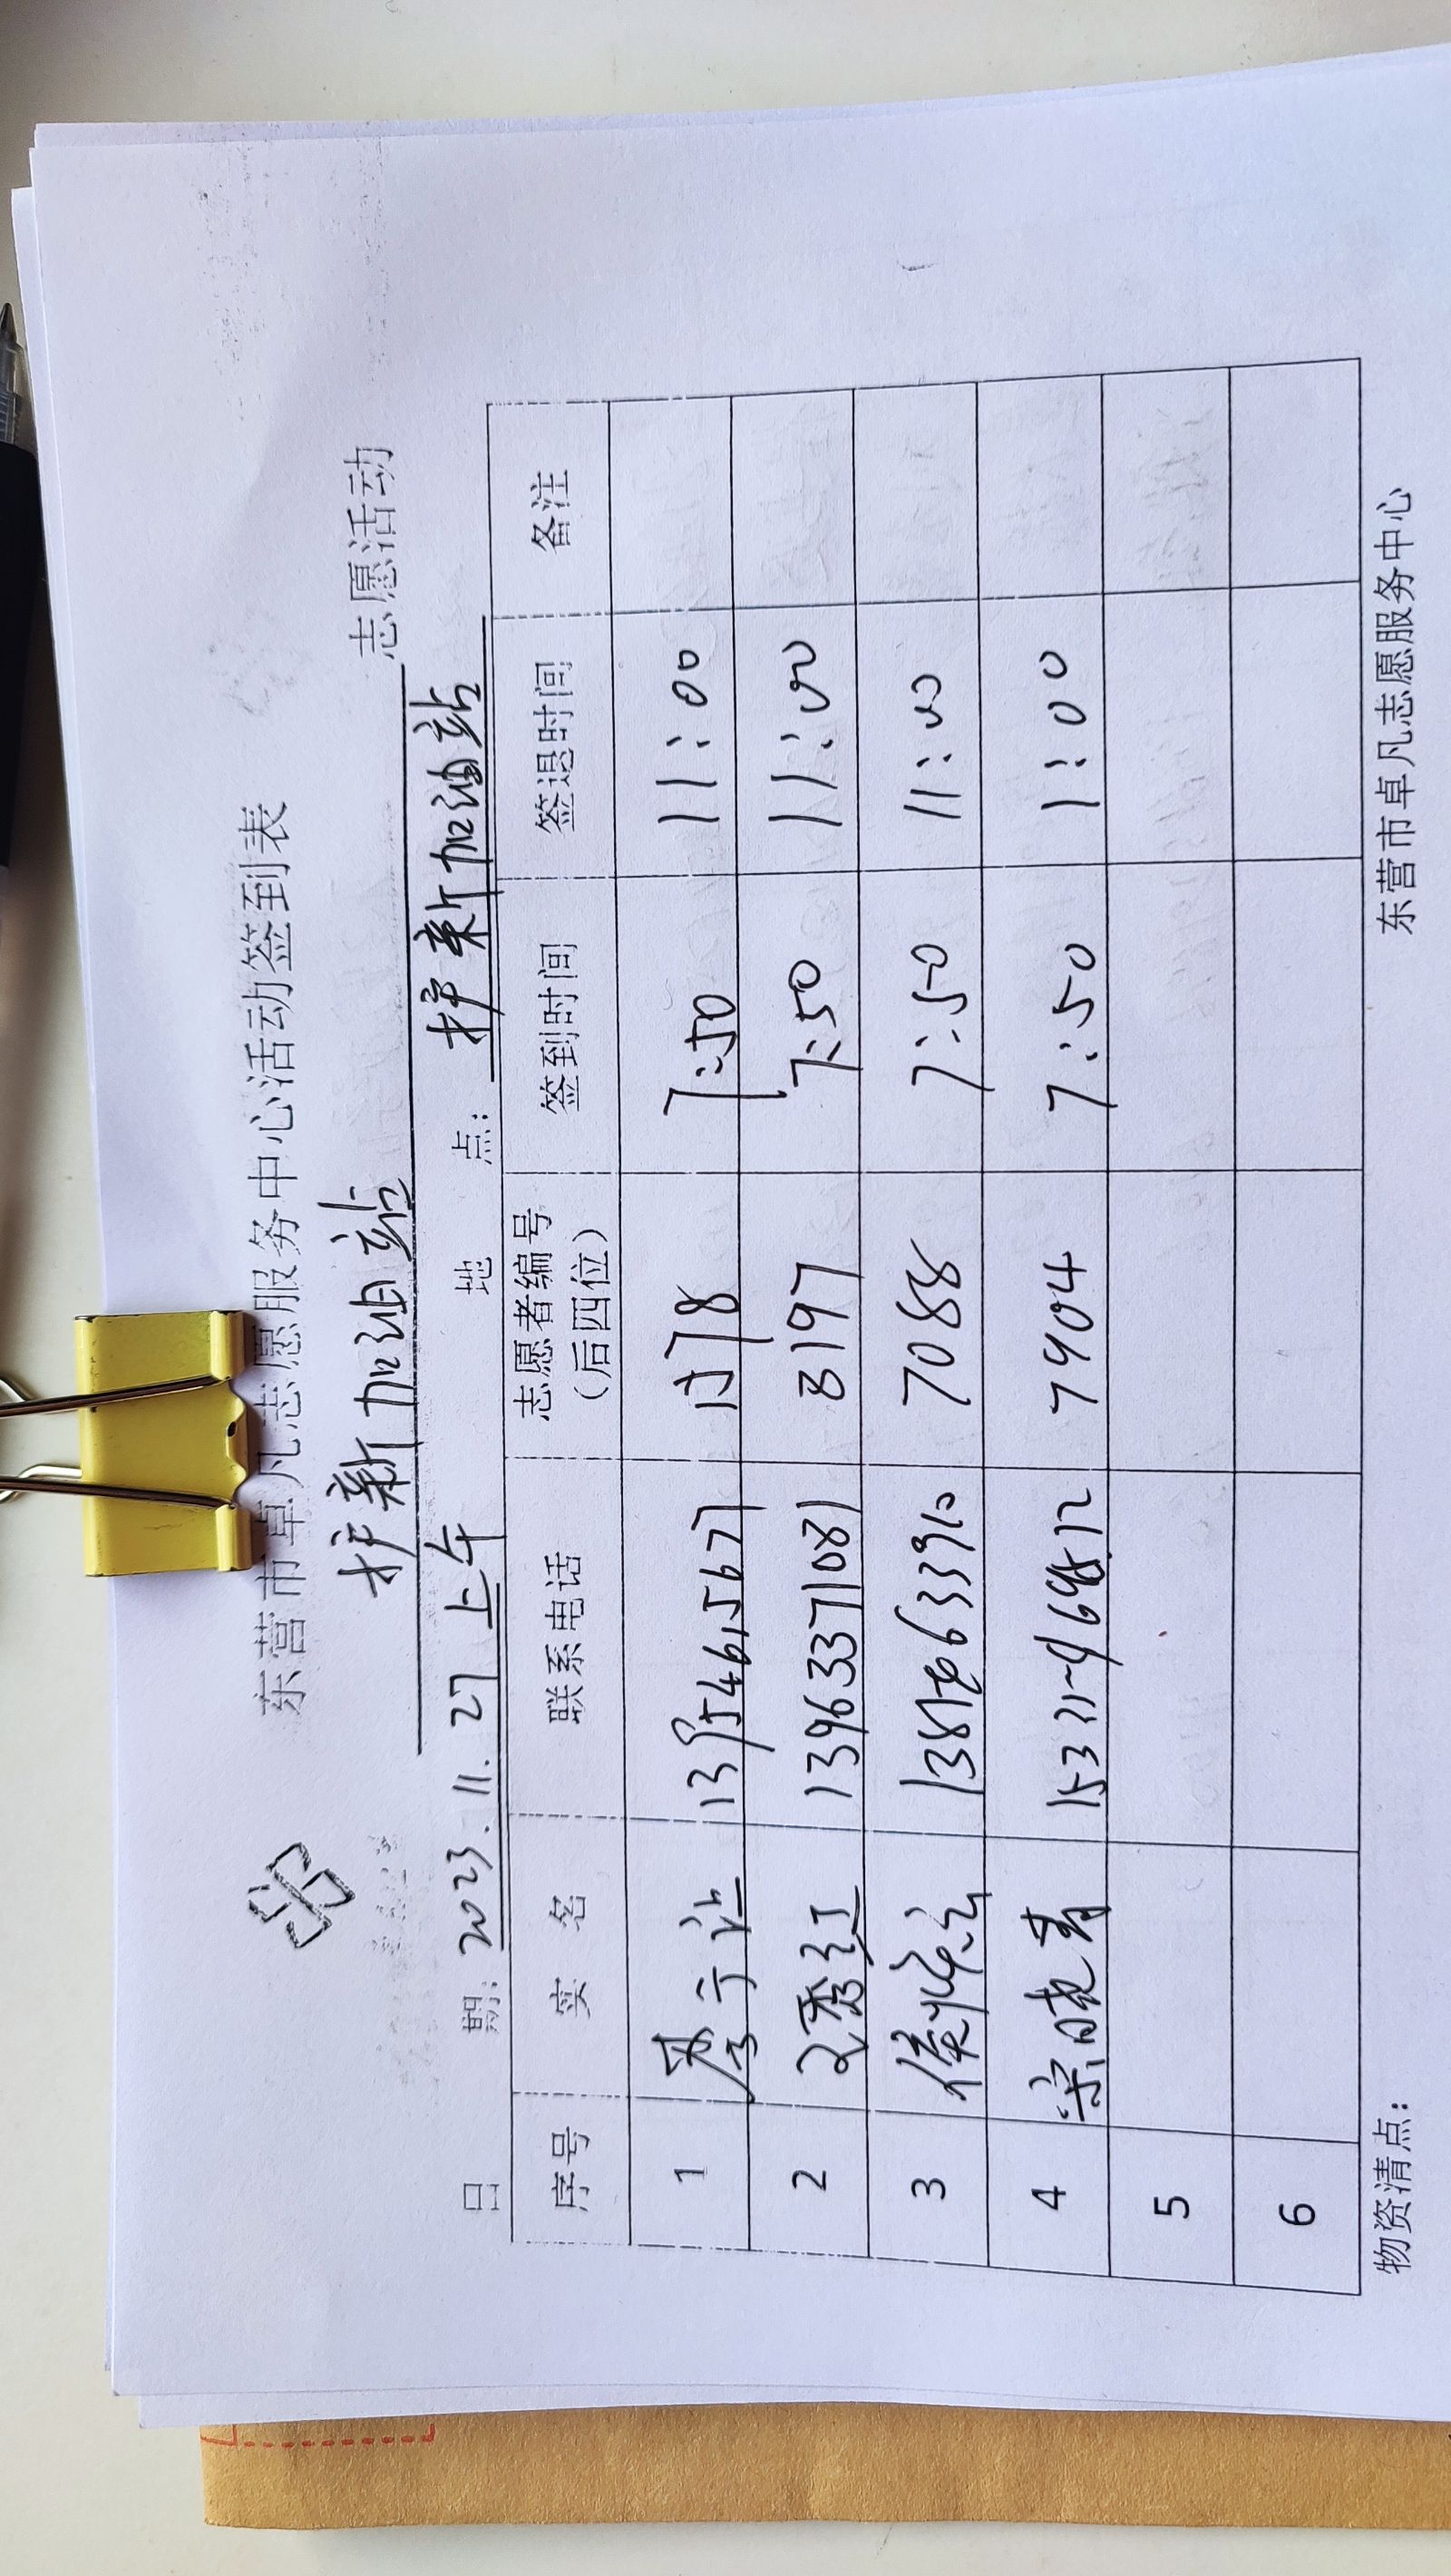 东营市卓凡志愿服务中心活动签到表
护新加油站 志愿活动
日 期: 2023.11.27 上午 地 点: 护新加油站
序号 实 名 联系电话 志愿者编号（后四位） 签到时间 签退时间 备注
1 7:50 11:00
2 文秀红 13963371081 8197 7:50 11:00
3 7088 7:50 11:00
4 宋晓青 7904 7:50 1:00
5
6
物资清点: 东营市卓凡志愿服务中心